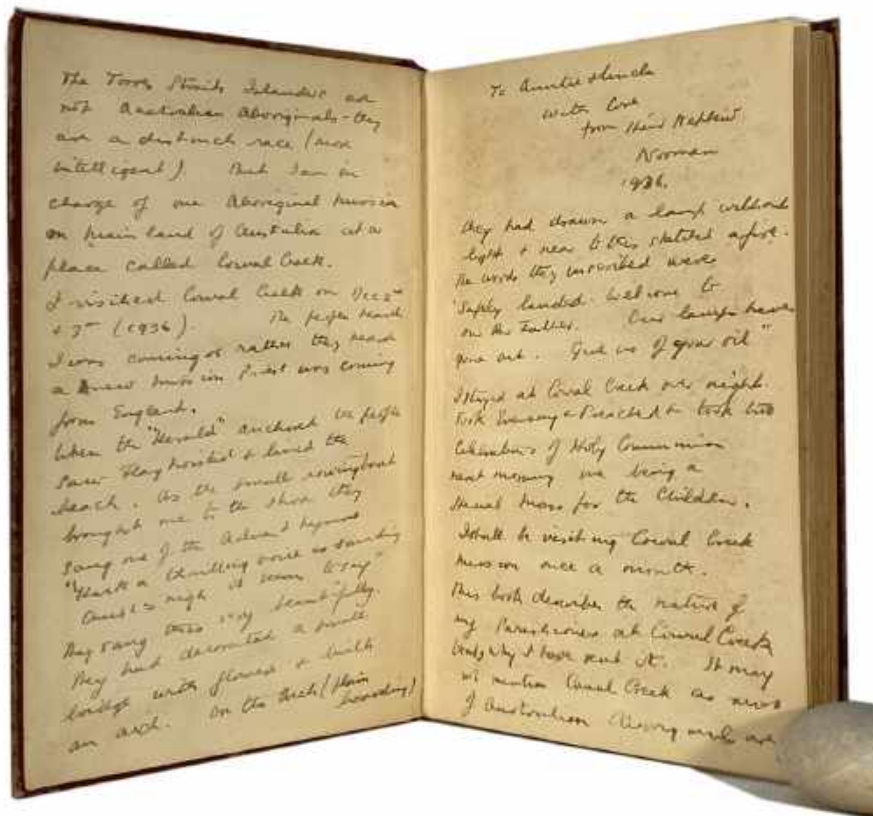 The Torres Straits Islanders are
not Australian Aboriginals – they
are a distinct race (more
intelligent). But I am in
charge of one Aboriginal mission
on main land of Australia at a
place called Cowal Creek.
I visited Cowal Creek on Dec 2nd
+ 3rd (1936). The people heard
I was coming or rather they heard
a new mission Priest was coming
from England.
When the "Herald" anchored the people
saw Flag hoisted + lined the
beach. As the small rowing boat
brought me to the shore they
sang one of the Advent hymns
"Hark a thrilling voice is sounding
Christ is nigh it seems to say"
They sang this very beautifully.
They had decorated a small
bridge with flowers + built
an arch. On the Arch (plain
boarding)
To Auntie
with love
from Her Nephew
Norman
1936.
they had drawn a lamp without
light + near to this sketched a fire.
The words they inscribed were
"Safely landed. Welcome to
our Father. Our lamps have
gone out. Give us of your oil"
I stayed at Cowal Creek over night.
Took Evensong + Preached + took two
Celebrations of Holy Communion
next morning one being a
Mass for the Children.
I shall be visiting Cowal Creek
mission once a month.
This book describes the nature of
my Parishioners at Cowal Creek
why I have sent it. It may
not mention Cowal Creek as
of Australian Aboriginals are